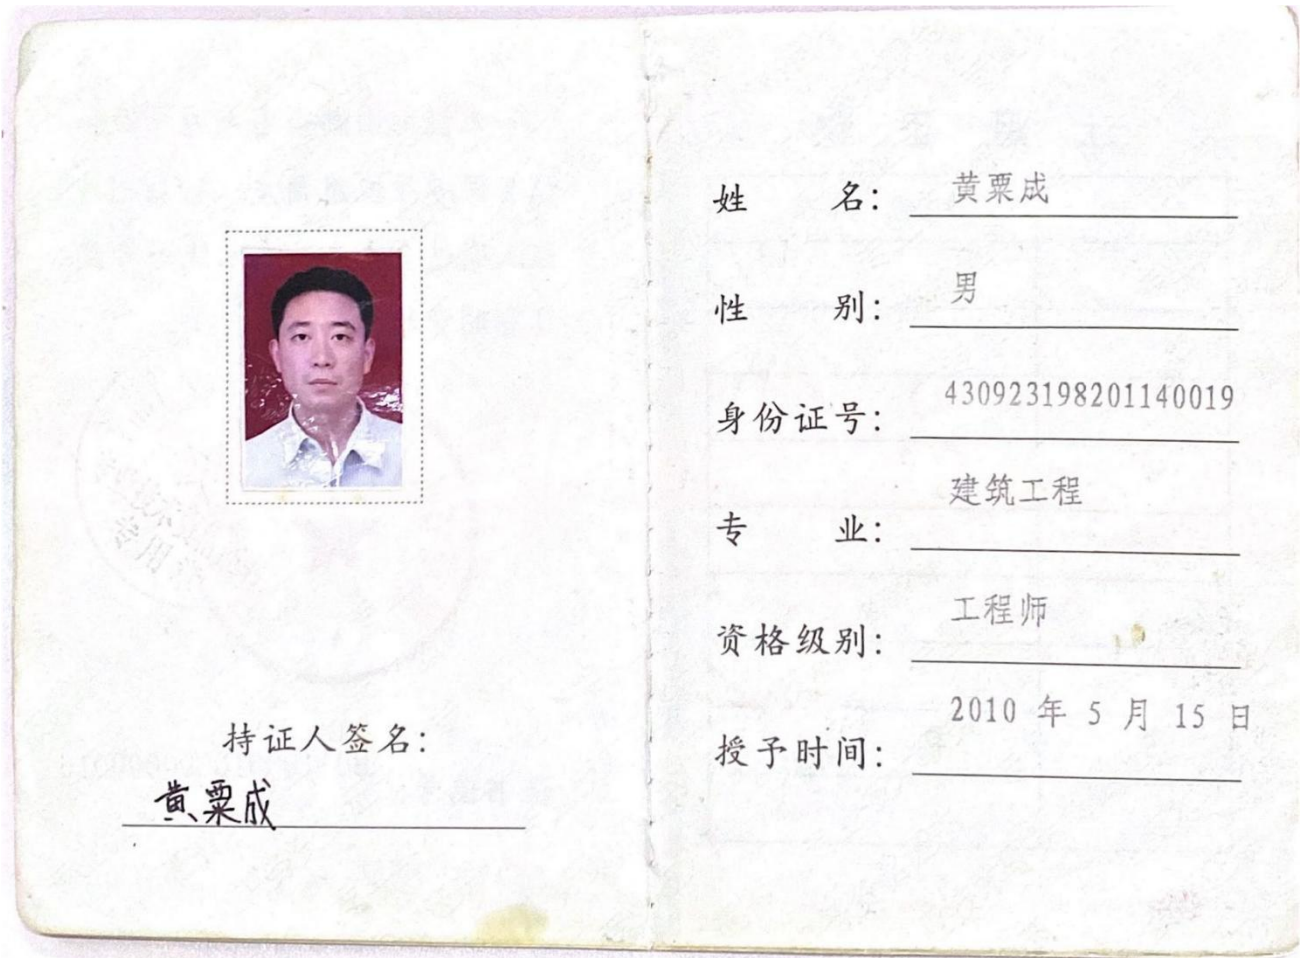 持证人签名：
黄粟成
姓 名： 黄粟成
性 别： 男
身份证号： 430923198201140019
专 业： 建筑工程
资格级别： 工程师
授予时间： 2010 年 5 月 15 日